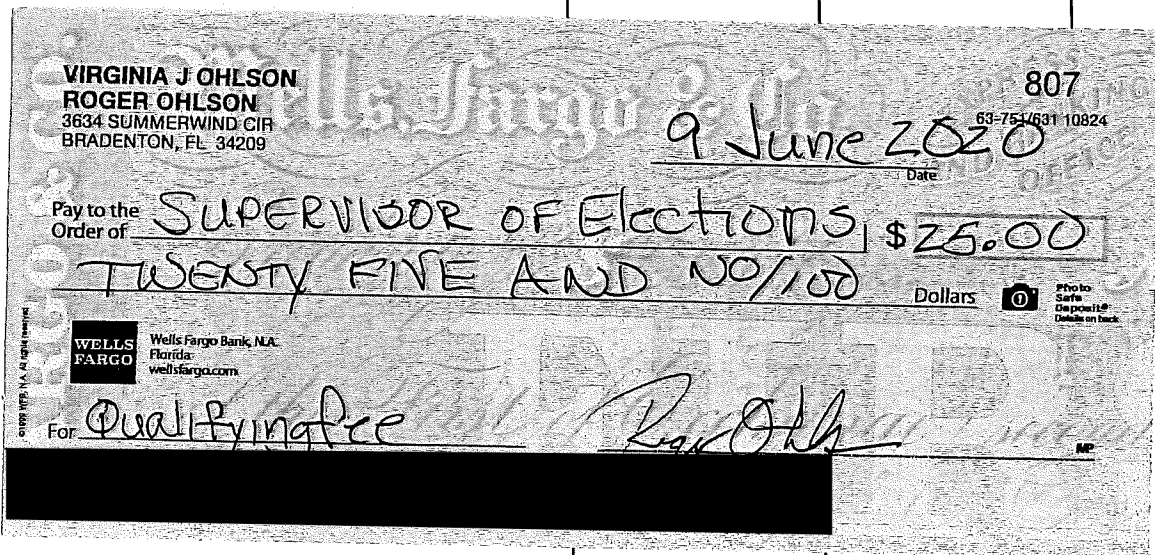 Wells Fargo & Co
VIRGINIA J OHLSON
ROGER OHLSON
3634 SUMMERWIND CIR
BRADENTON, FL 34209
807
63-751/631 10824
9 June 2020
Date
Pay to the
Order of
SUPERVISOR OF Elections
$ 25.00
TWENTY FIVE AND NO/100
Dollars
Photo
Safe
Deposit®
Details on back
WELLS
FARGO
Wells Fargo Bank, N.A.
Florida
wellsfargo.com
For Qualifying fee
Roger Ohlson
MP